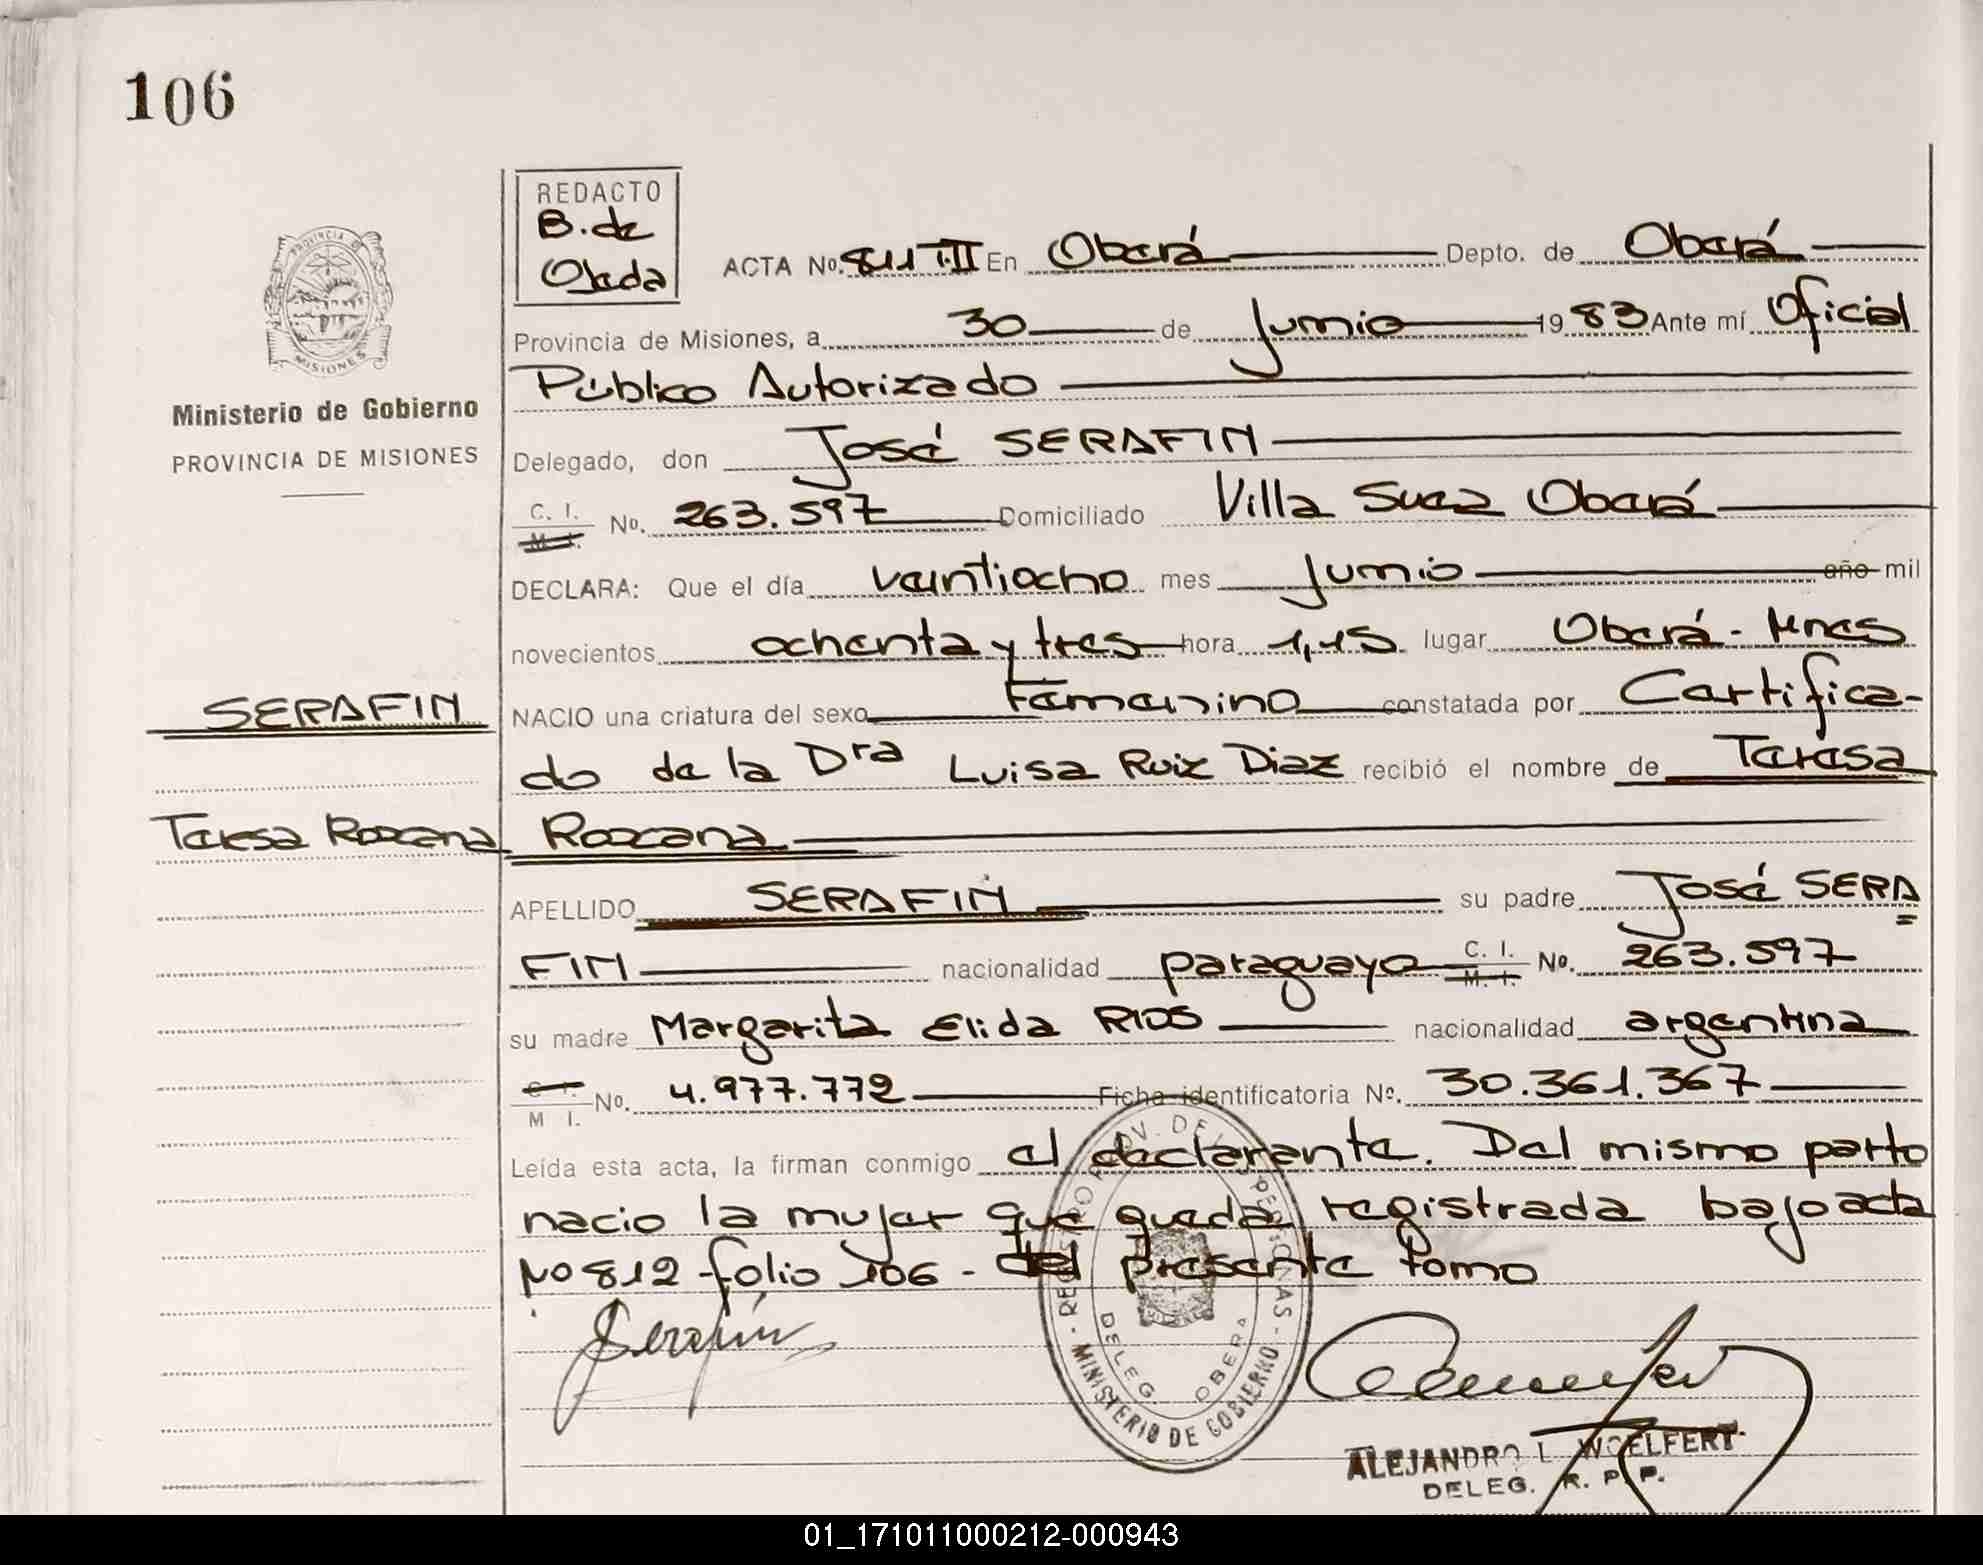 106
REDACTO
B. de
Ojeda
PROVINCIA DE
MISIONES
Ministerio de Gobierno
PROVINCIA DE MISIONES
ACTA No. 811 T.II En Oberá Depto. de Oberá
Provincia de Misiones, a 30 de Junio 19 83 Ante mí Oficial
Público Autorizado
Delegado, don José SERAFIN
C. I. M. I. No. 263.597 Domiciliado Villa Suez Oberá
DECLARA: Que el día veintiocho mes Junio año mil
novecientos ochenta y tres hora 1,15 lugar Oberá - Mnes
SERAFIN
NACIO una criatura del sexo femenino constatada por Certifica-
do de la Dra Luisa Ruiz Diaz recibió el nombre de Teresa
Teresa Roxana
Roxana
APELLIDO SERAFIN su padre José SERA
FIN nacionalidad paraguaya C. I. M. I. No. 263.597
su madre Margarita Elida RIOS nacionalidad argentina
C. I. M I. No. 4.977.772 Ficha identificatoria No. 30.361.367
Leída esta acta, la firman conmigo el declarante. Del mismo parto
nacio la mujer que queda registrada bajo acta
No 812 folio 106 - del presente tomo
Serafín
REGISTRO PROV. DE LAS PERSONAS
DELEG. OBERA
MINISTERIO DE GOBIERNO
ALEJANDRO L. WOELFERT
DELEG. R. P. P.
01_171011000212-000943